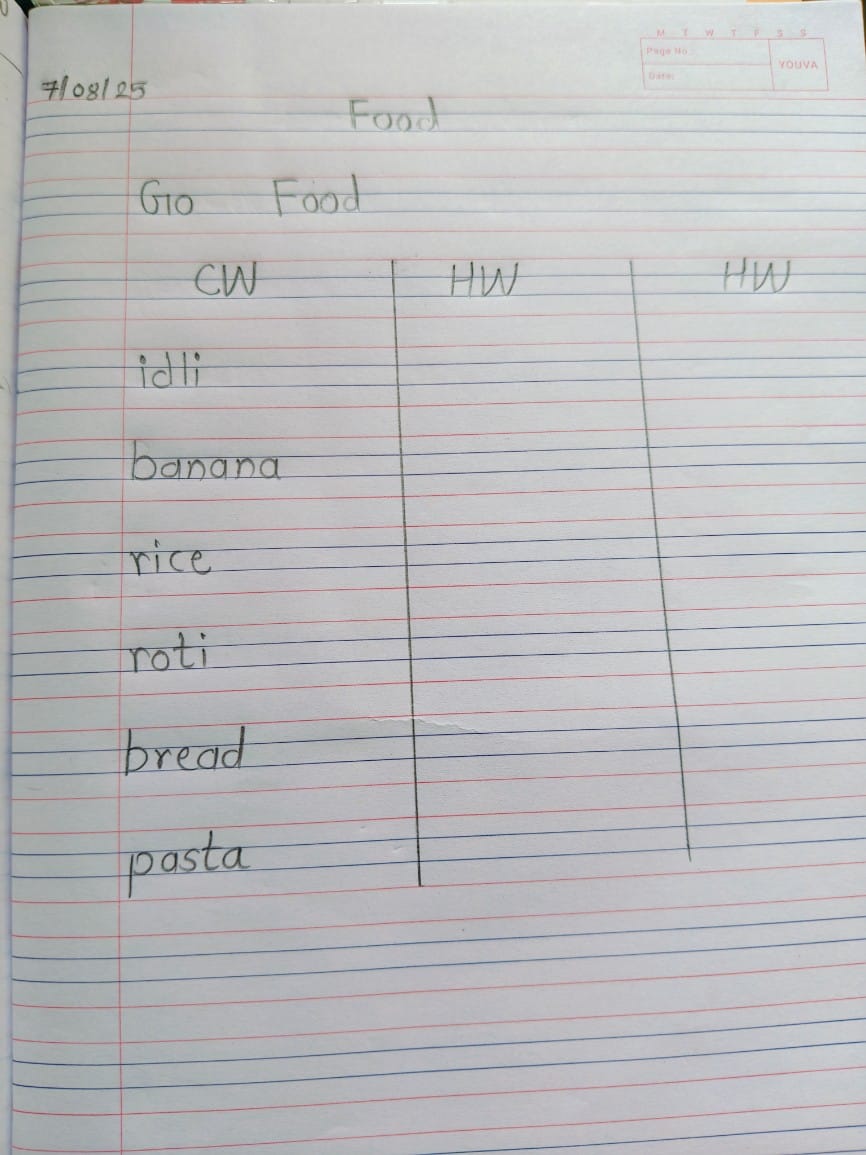 M T W T F S S
Page No.:
YOUVA
Date:
7/08/25
Food
Go Food
CW HW HW
idli
banana
rice
roti
bread
pasta